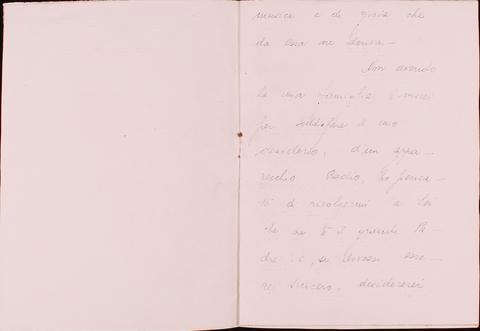 musica e di gioia che
da essa ne deriva -
Non avendo
la mia famiglia i mezzi
per soddisfare il caso
desiderio, d'un appa-
recchio Radio, ho pensa-
to di rivolgermi a Lei
che as è il grande Pa-
dre: e, se dovessi esse-
re sincero, desidererei